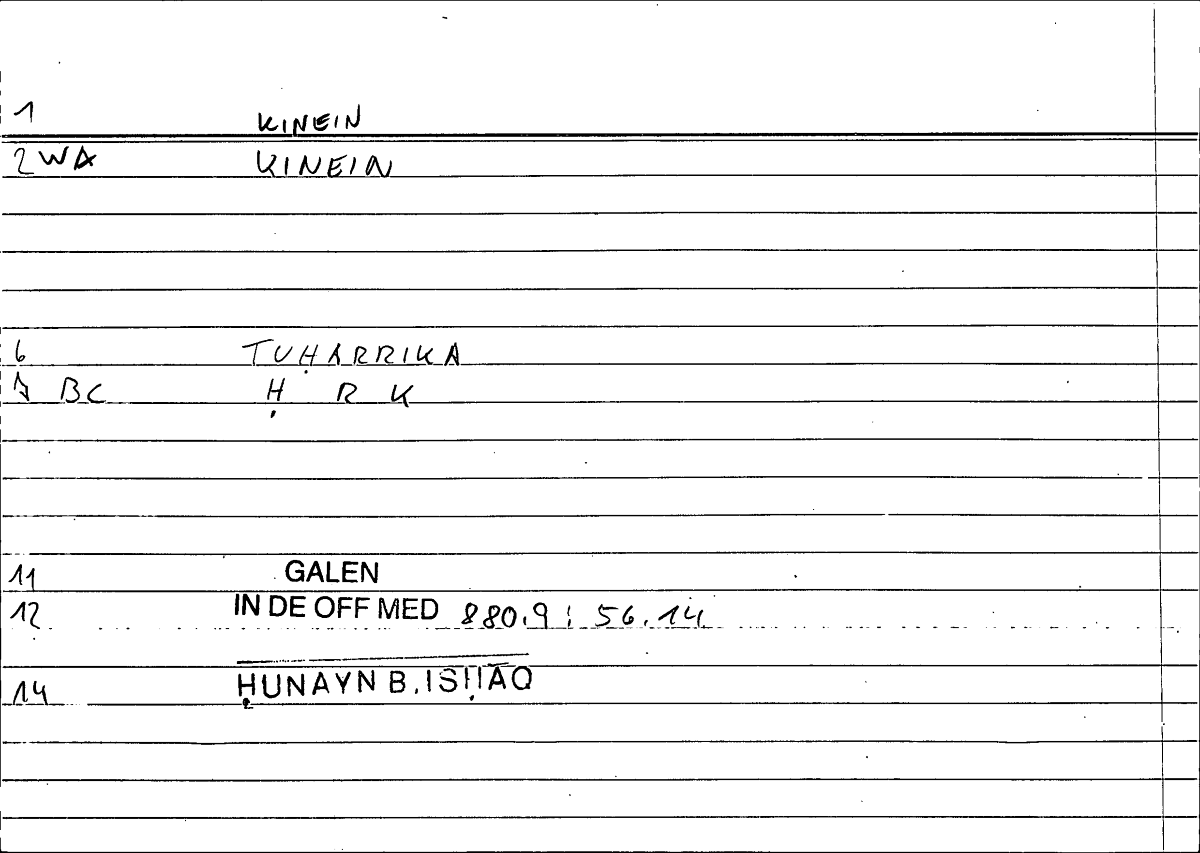 1 KINEIN
2 WA KINEIN
6 TUḤARRIKA
7 BC Ḥ R K
11 GALEN
12 IN DE OFF MED 880.9; 56.14
14 ḤUNAYN B. ISḤĀQ